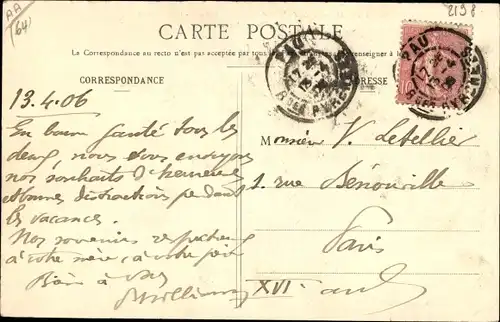 AA
(64)
2138
CARTE POSTALE
La Correspondance au recto n'est pas acceptée par tous les
CORRESPONDANCE
ADRESSE
PAU
PAU
13.4.06
En bonne santé tous les
deux, nous vous envoyons
nos souhaits d'heureuses
et bonnes distractions pendant
les vacances.
Nos souvenirs respectueux
à votre mère, à votre père
Bien à vous
Monsieur V. Letellier
1 rue Bénouville
Paris
XVI